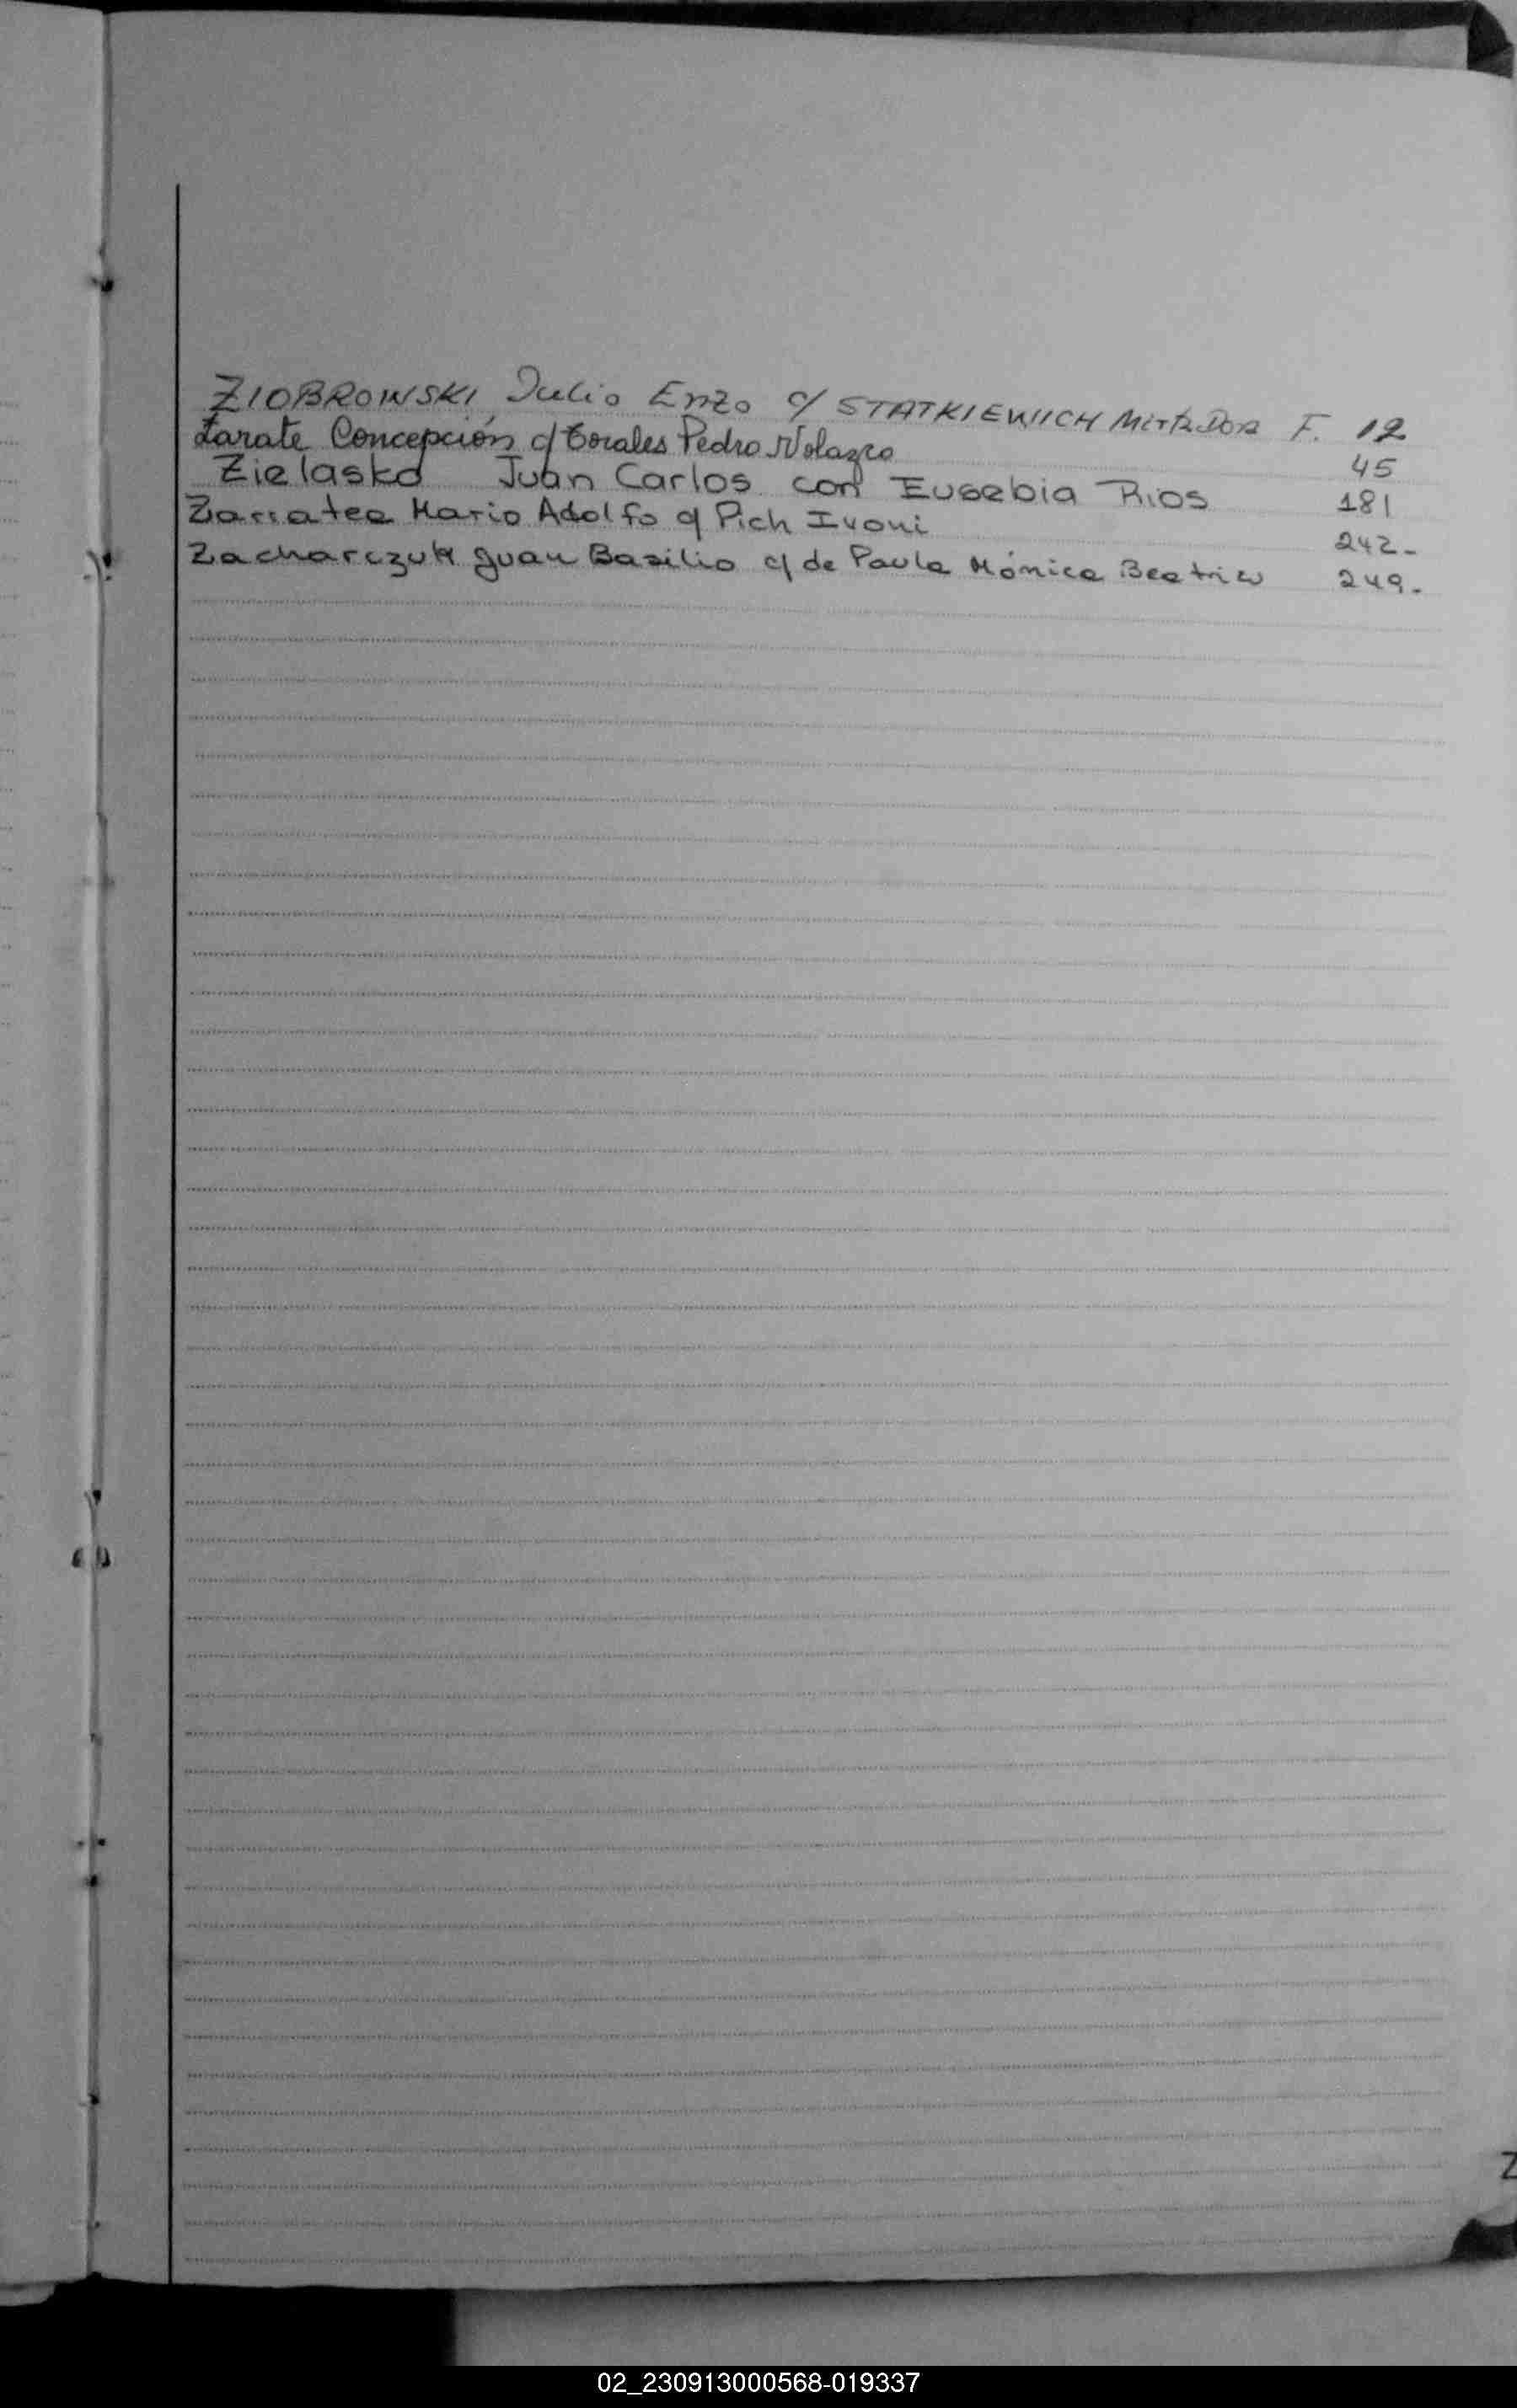 ZIOBROWSKI, Julio Enzo c/ STATKIEWIICH F. 12
Zarate Concepción c/ Corales Pedro Nolazco 45
Zielasko Juan Carlos con Eusebia Rios 181
Mario Adolfo c/ Pich Ivoni 242-
Zacharczuk Juan Basilio c/ de Paula Mónica Beatriz 249-
Z
02_230913000568-019337